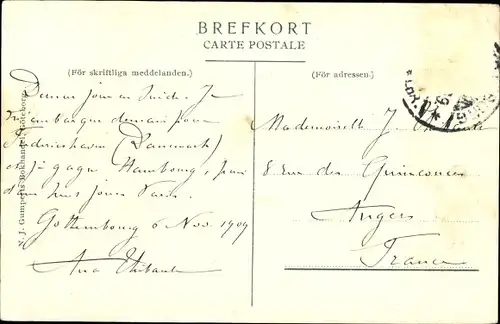 BREFKORT
CARTE POSTALE
(För skriftliga meddelanden.)
(För adressen.)
Dernier jour en Suède. Je
m'embarque demain pour
Frederikshavn (Danemark)
et je gagne Hambourg, puis
dans huit jours Paris.
Gothembourg 6 Nov. 1909
Mademoiselle J.
8 rue des Quinconces
Angers
France
N. J. Gumperts Bokhandel, Göteborg.